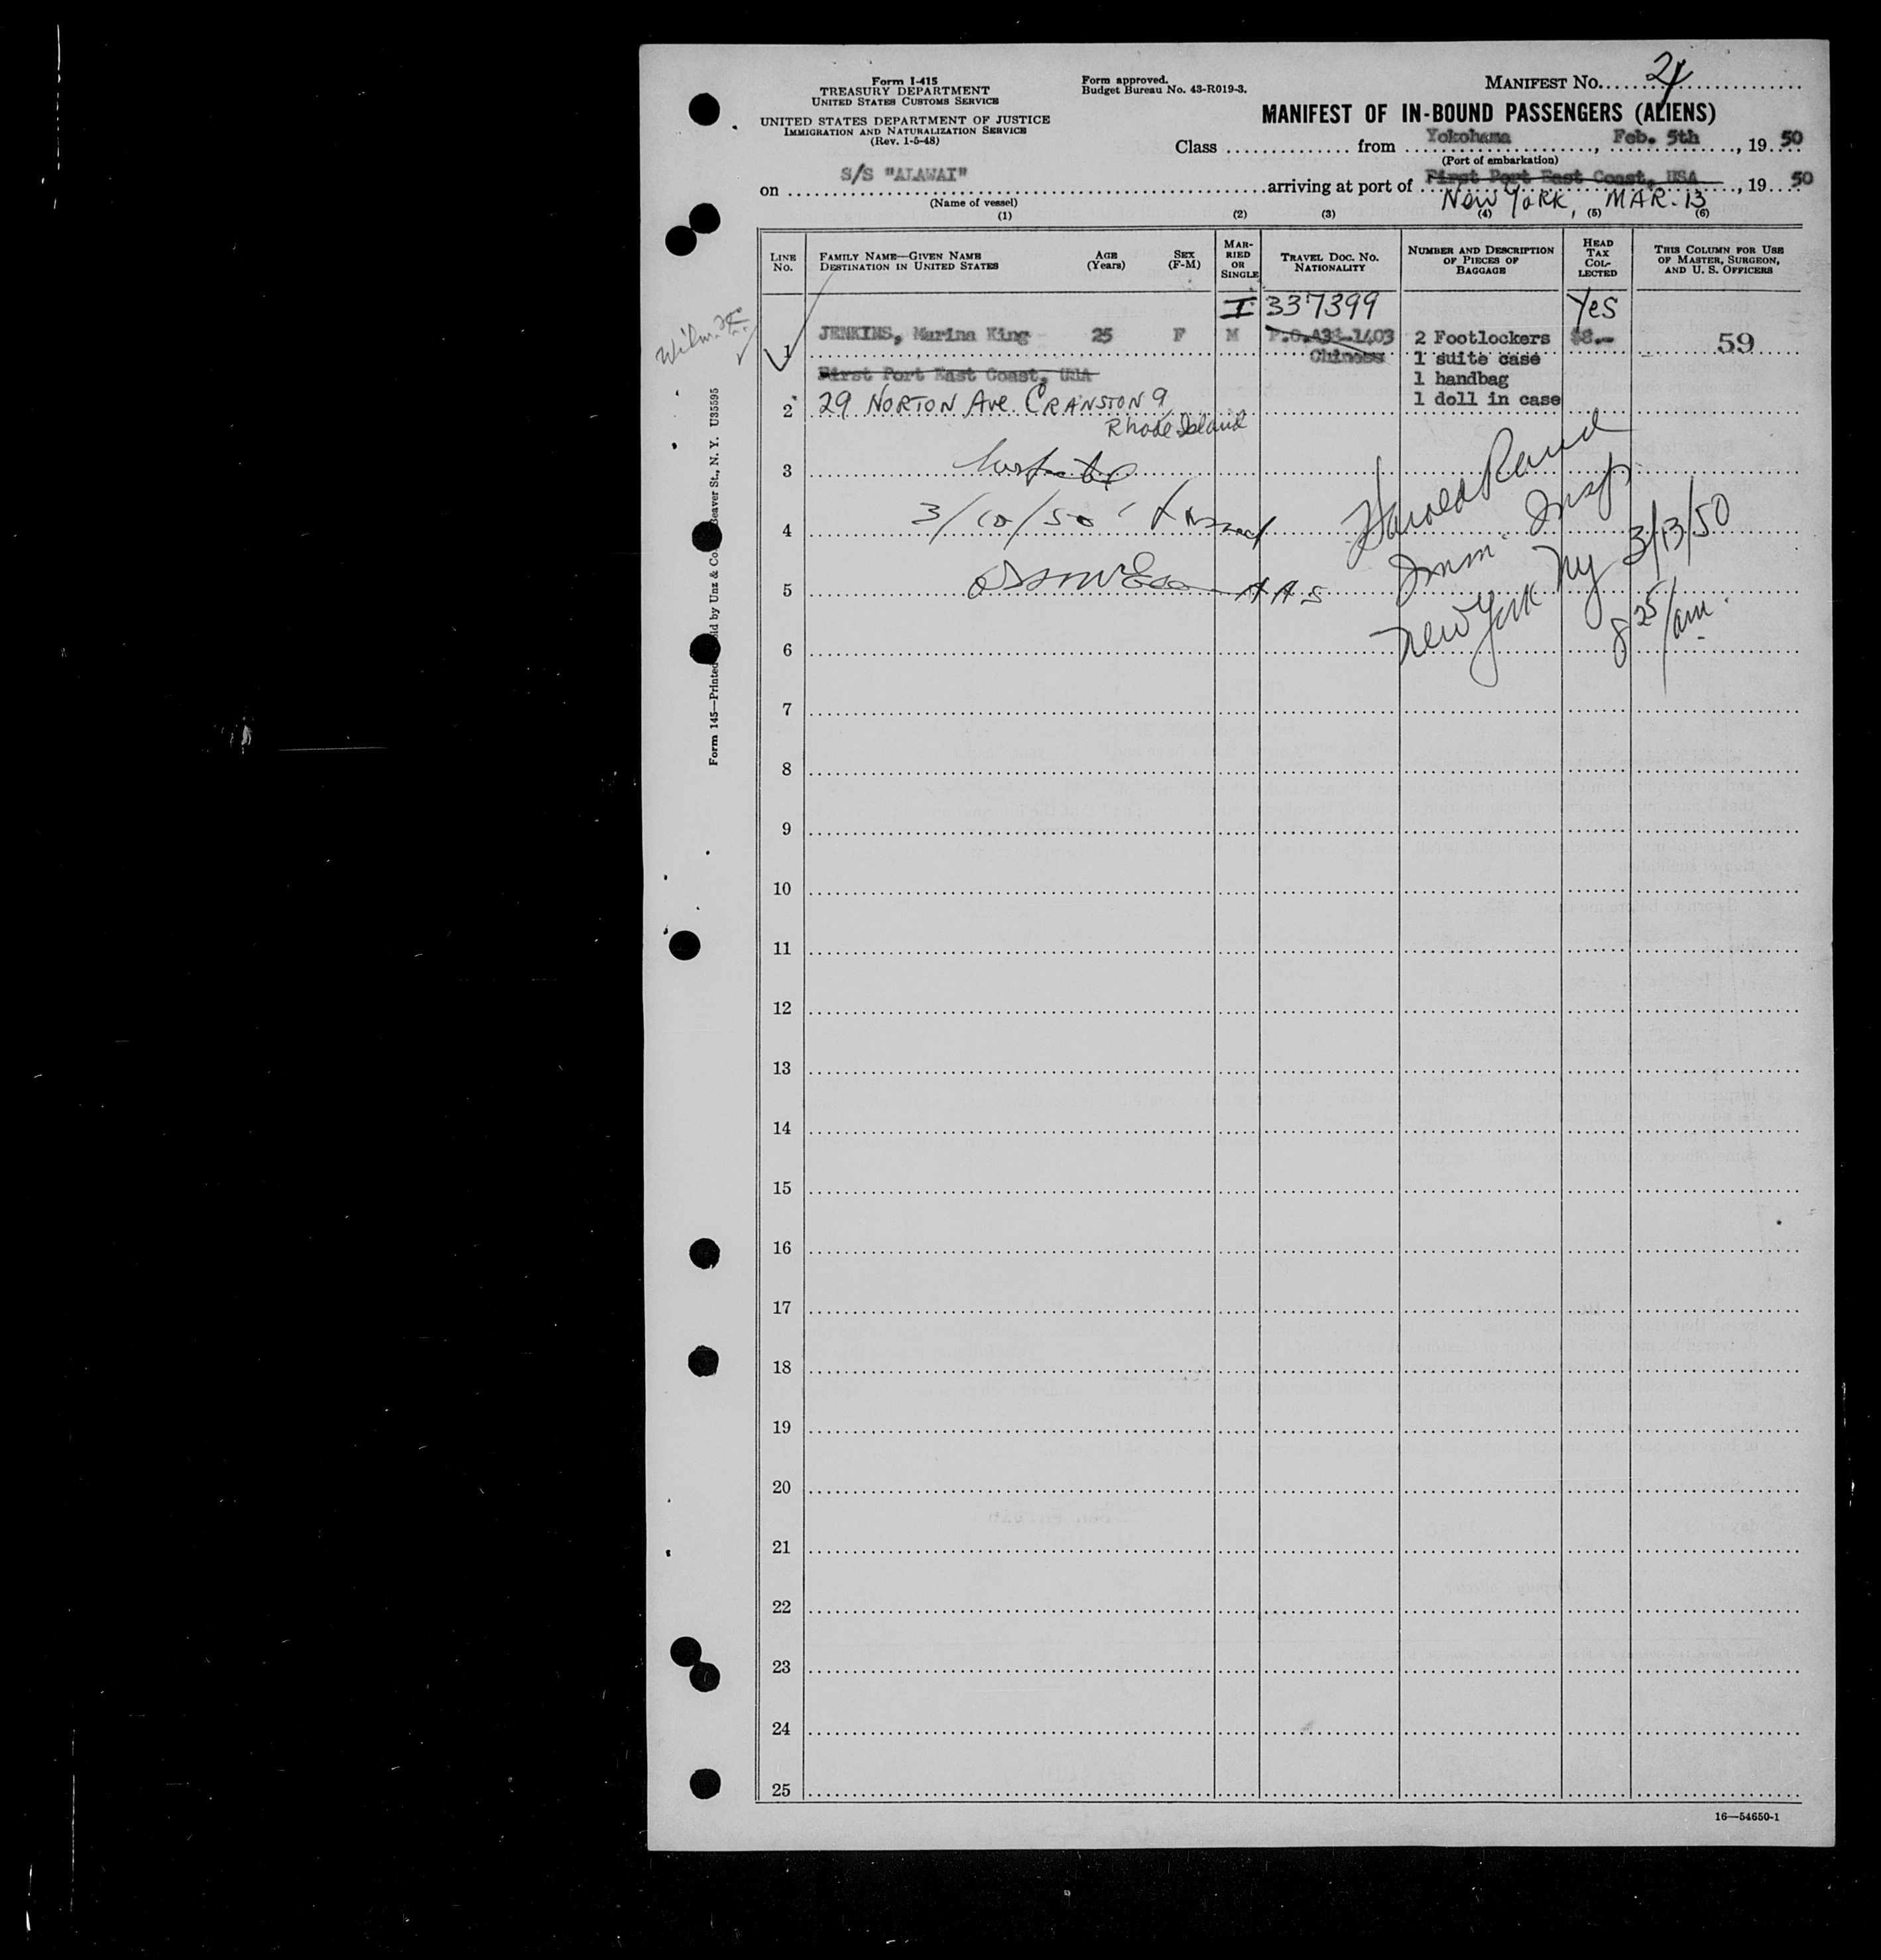 Form I-415
TREASURY DEPARTMENT
UNITED STATES CUSTOMS SERVICE
UNITED STATES DEPARTMENT OF JUSTICE
IMMIGRATION AND NATURALIZATION SERVICE
(Rev. 1-5-48)
Form approved.
Budget Bureau No. 43-R019-3.
MANIFEST No.
MANIFEST OF IN-BOUND PASSENGERS (ALIENS)
Class from Yokohama, Feb. 5th, 19 50
(Port of embarkation)
on S/S "ALAWAI" arriving at port of First Port East Coast, USA, 19 50
(Name of vessel)
New York, MAR. 13
(1) (2) (3) (4) (5) (6)
LINE No.
FAMILY NAME—GIVEN NAME
DESTINATION IN UNITED STATES
AGE (Years)
SEX (F-M)
MARRIED OR SINGLE
TRAVEL DOC. NO. NATIONALITY
NUMBER AND DESCRIPTION OF PIECES OF BAGGAGE
HEAD TAX COLLECTED
THIS COLUMN FOR USE OF MASTER, SURGEON, AND U. S. OFFICERS
I 337399 Yes
1 JENKINS, Marina King 25 F M P.O.A38-1403 2 Footlockers $8.- 59
Chinese 1 suite case
First Port East Coast, USA 1 handbag
2 29 NORTON Ave CRANSTON 9 1 doll in case
Rhode Island
3
4 3/10/50
5
6
Harold Rand
Imm. Insp
New York Ny 3/13/50
8 25/am.
7
8
9
10
11
12
13
14
15
16
17
18
19
20
21
22
23
24
25
16—54650-1
Form 145—Printed
ld by Unz & Co.
eaver St., N. Y. U35595